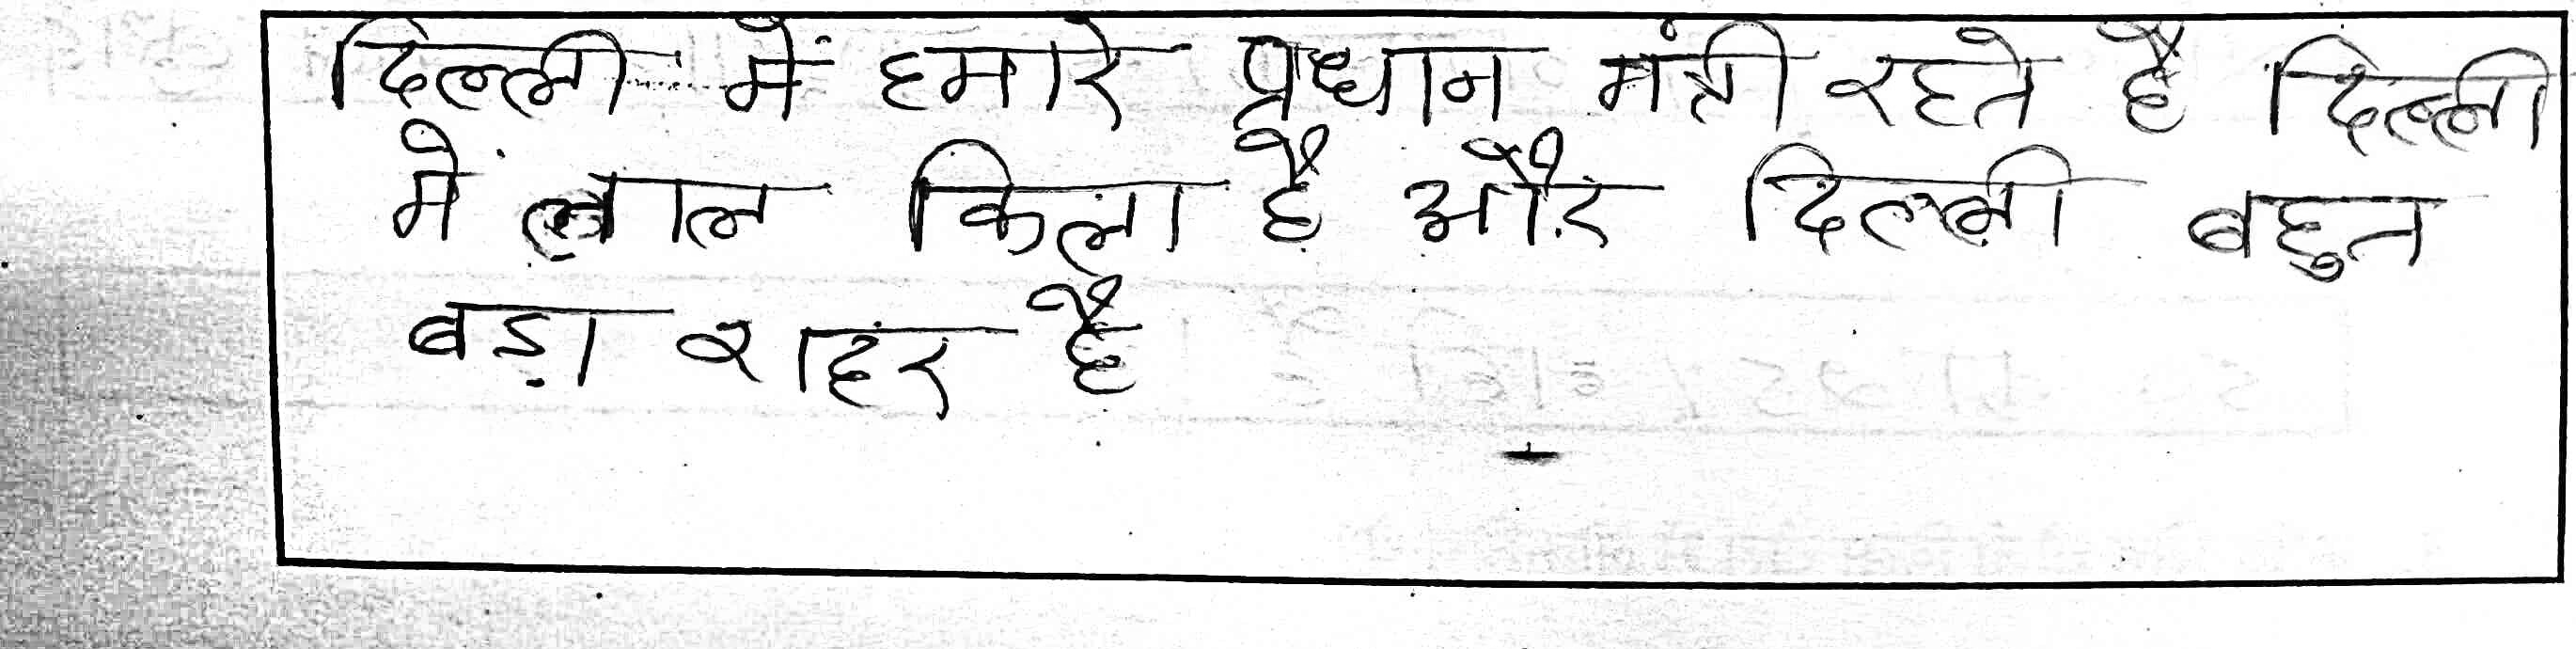 दिल्ली में हमारे प्रधान मंत्री रहते है दिल्ली
मे लाल किला है और दिल्ली बहुत
बड़ा शहर है